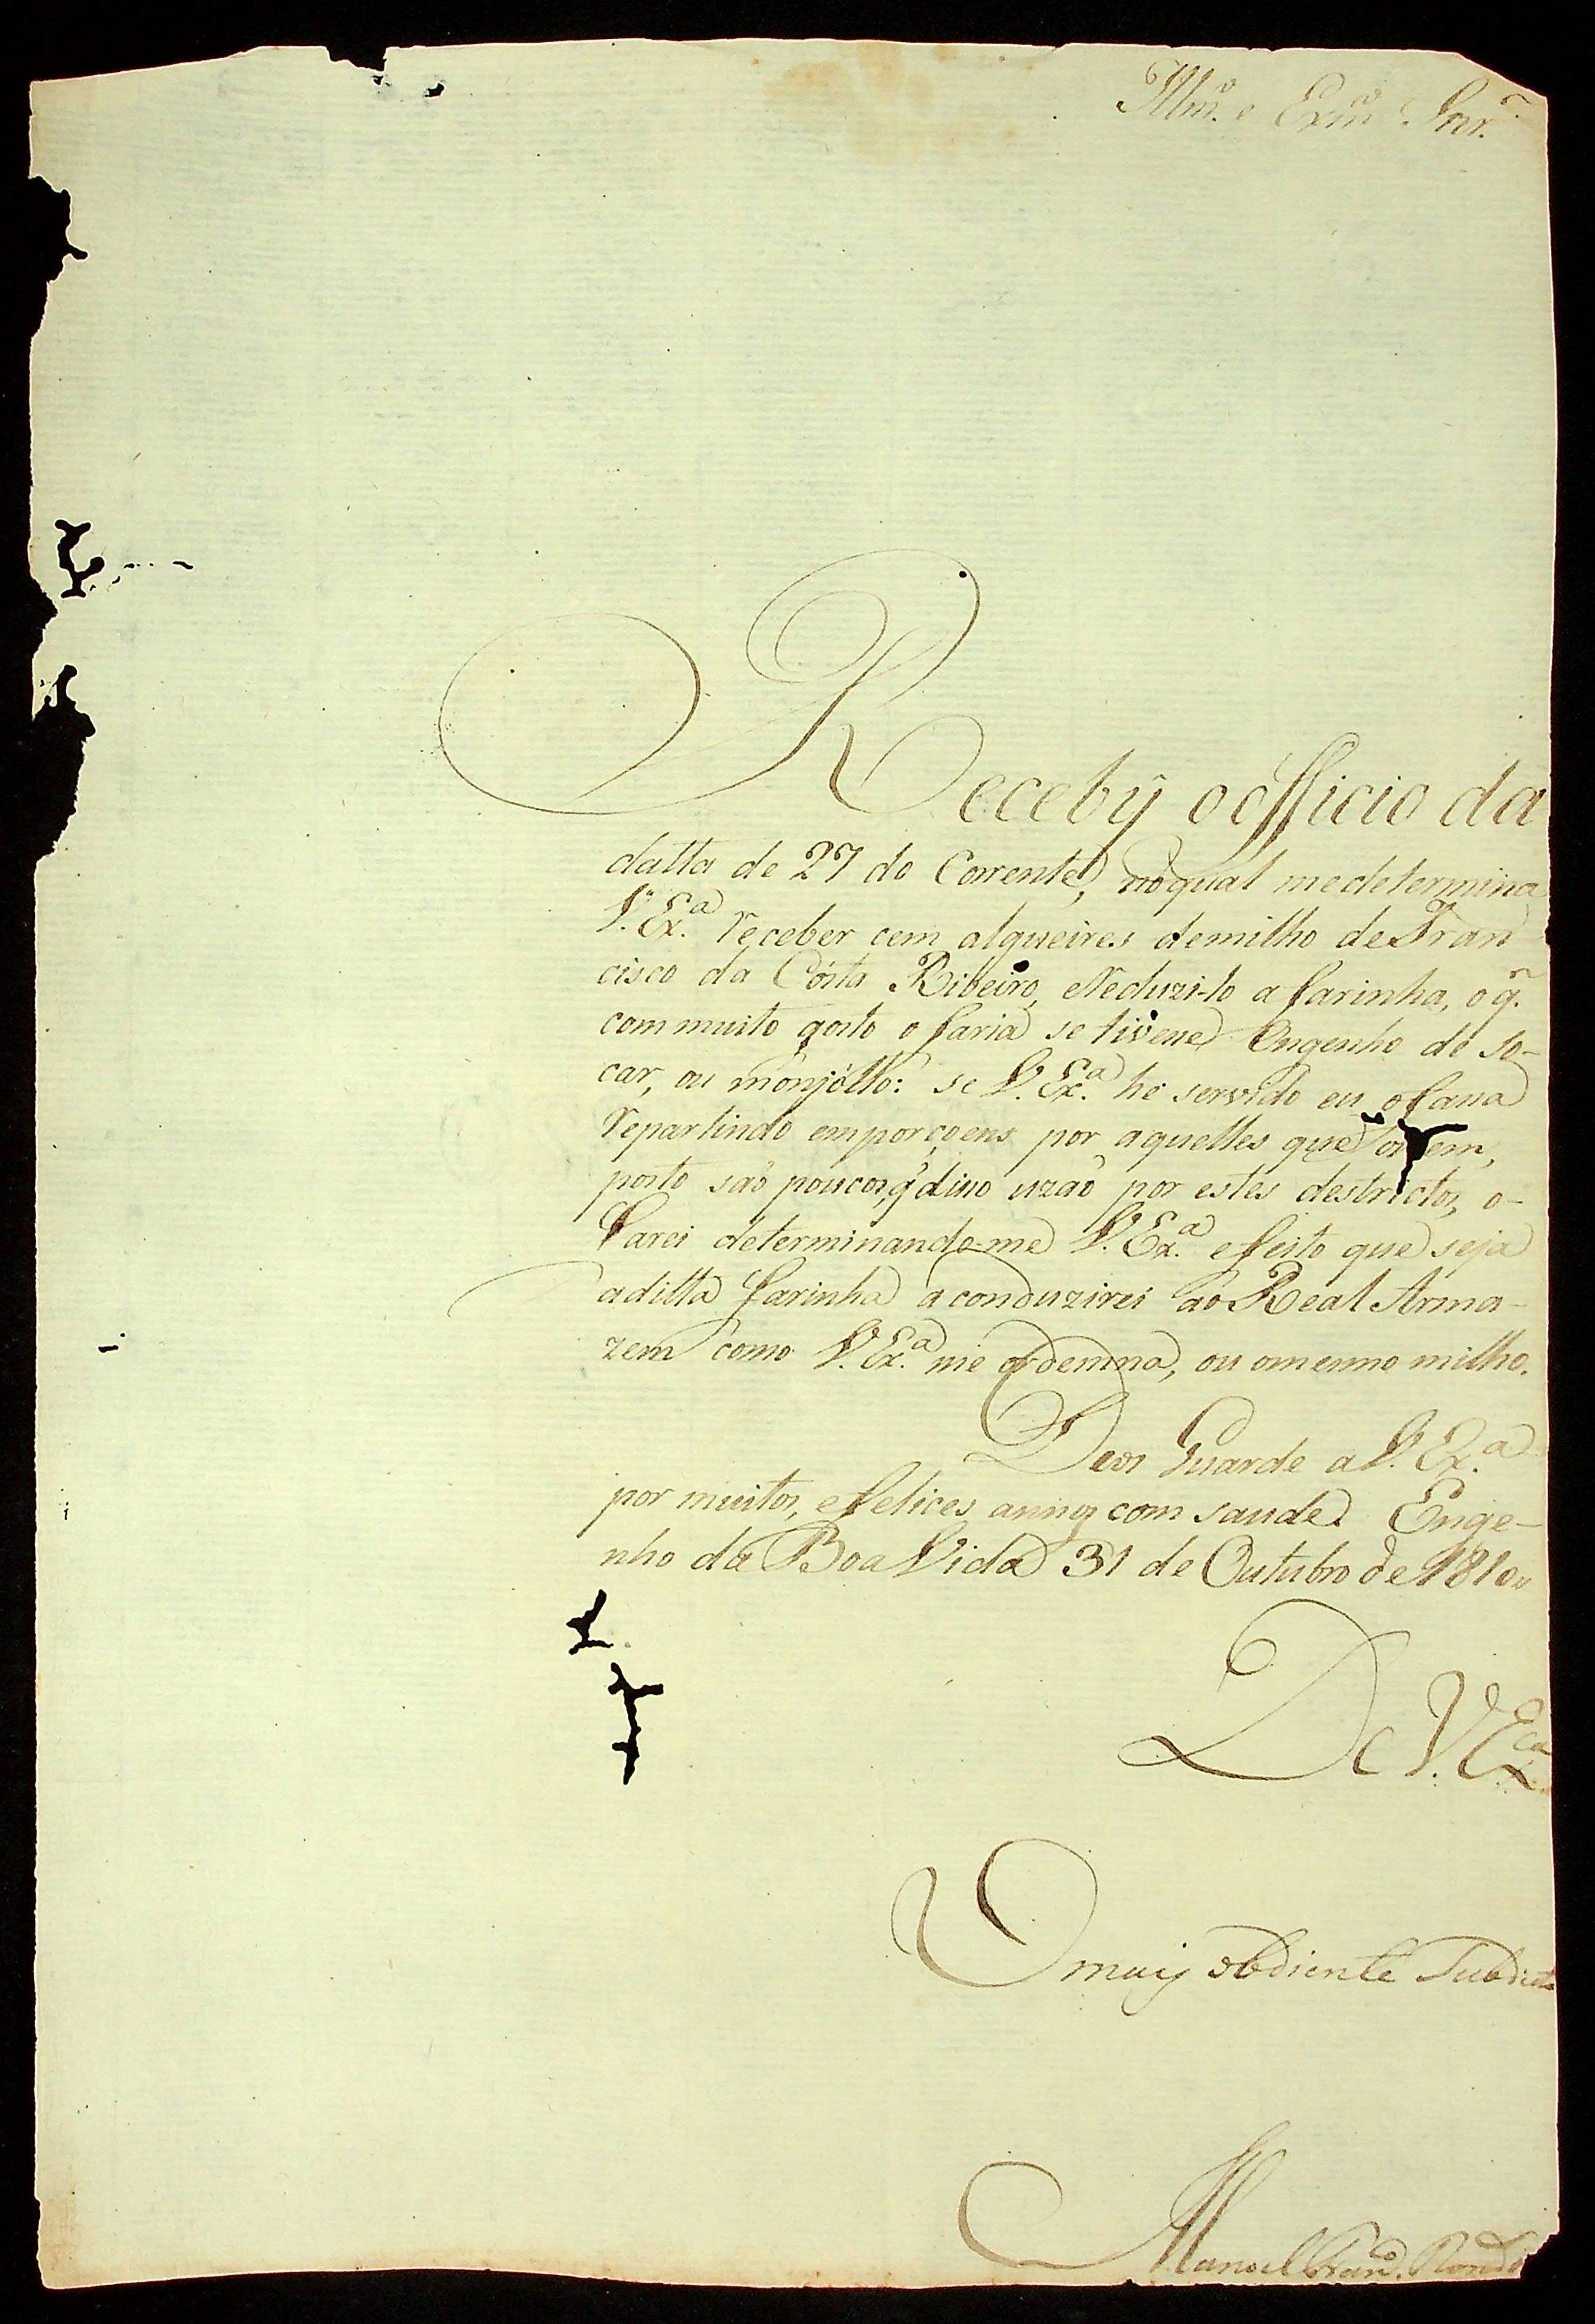 Illmº. e Exmº Snr.
Receby o officio da
datta de 27 do Corrente, no qual me determina
V. Ex.ª receber cem alqueires de milho de Fran
cisco da Costa Ribeiro, e reduzi-lo a farinha, o q.
com muito gosto o faria se tivesse Engenho de so-
car, ou monjollo: se V. Ex.ª he servido eu o faria
repartindo em porçoens por aquelles que os tem,
posto são poucos, q' disso uzão por estes destrictos, o-
farei determinando-me V. Ex.ª e feito que seja
a ditta farinha a conduzirei ao Real Arma-
zem como V. Ex.ª me ordemna, ou o mesmo milho.
Deos Guarde a V. Ex.ª
por muitos, e felices annos com saude. Enge-
nho da Boa Vida 31 de Outubro de 1810
De V. Exca
O muiy obdiente Subdito
Manoel